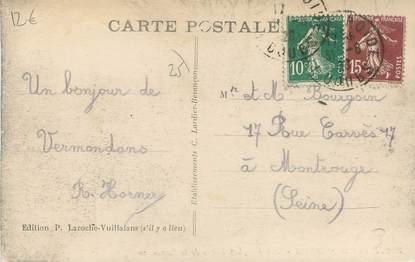 12€
CARTE POSTALE
10c
15c
25
Un bonjour de
Vermondans
R. Horner
Mr et M Bourgoin
17 Rue Carvès 17
à Montrouge
(Seine)
Etablissements C. Lardier-Besançon
Edition P. Laroche-Vuillafans (s'il y a lieu)